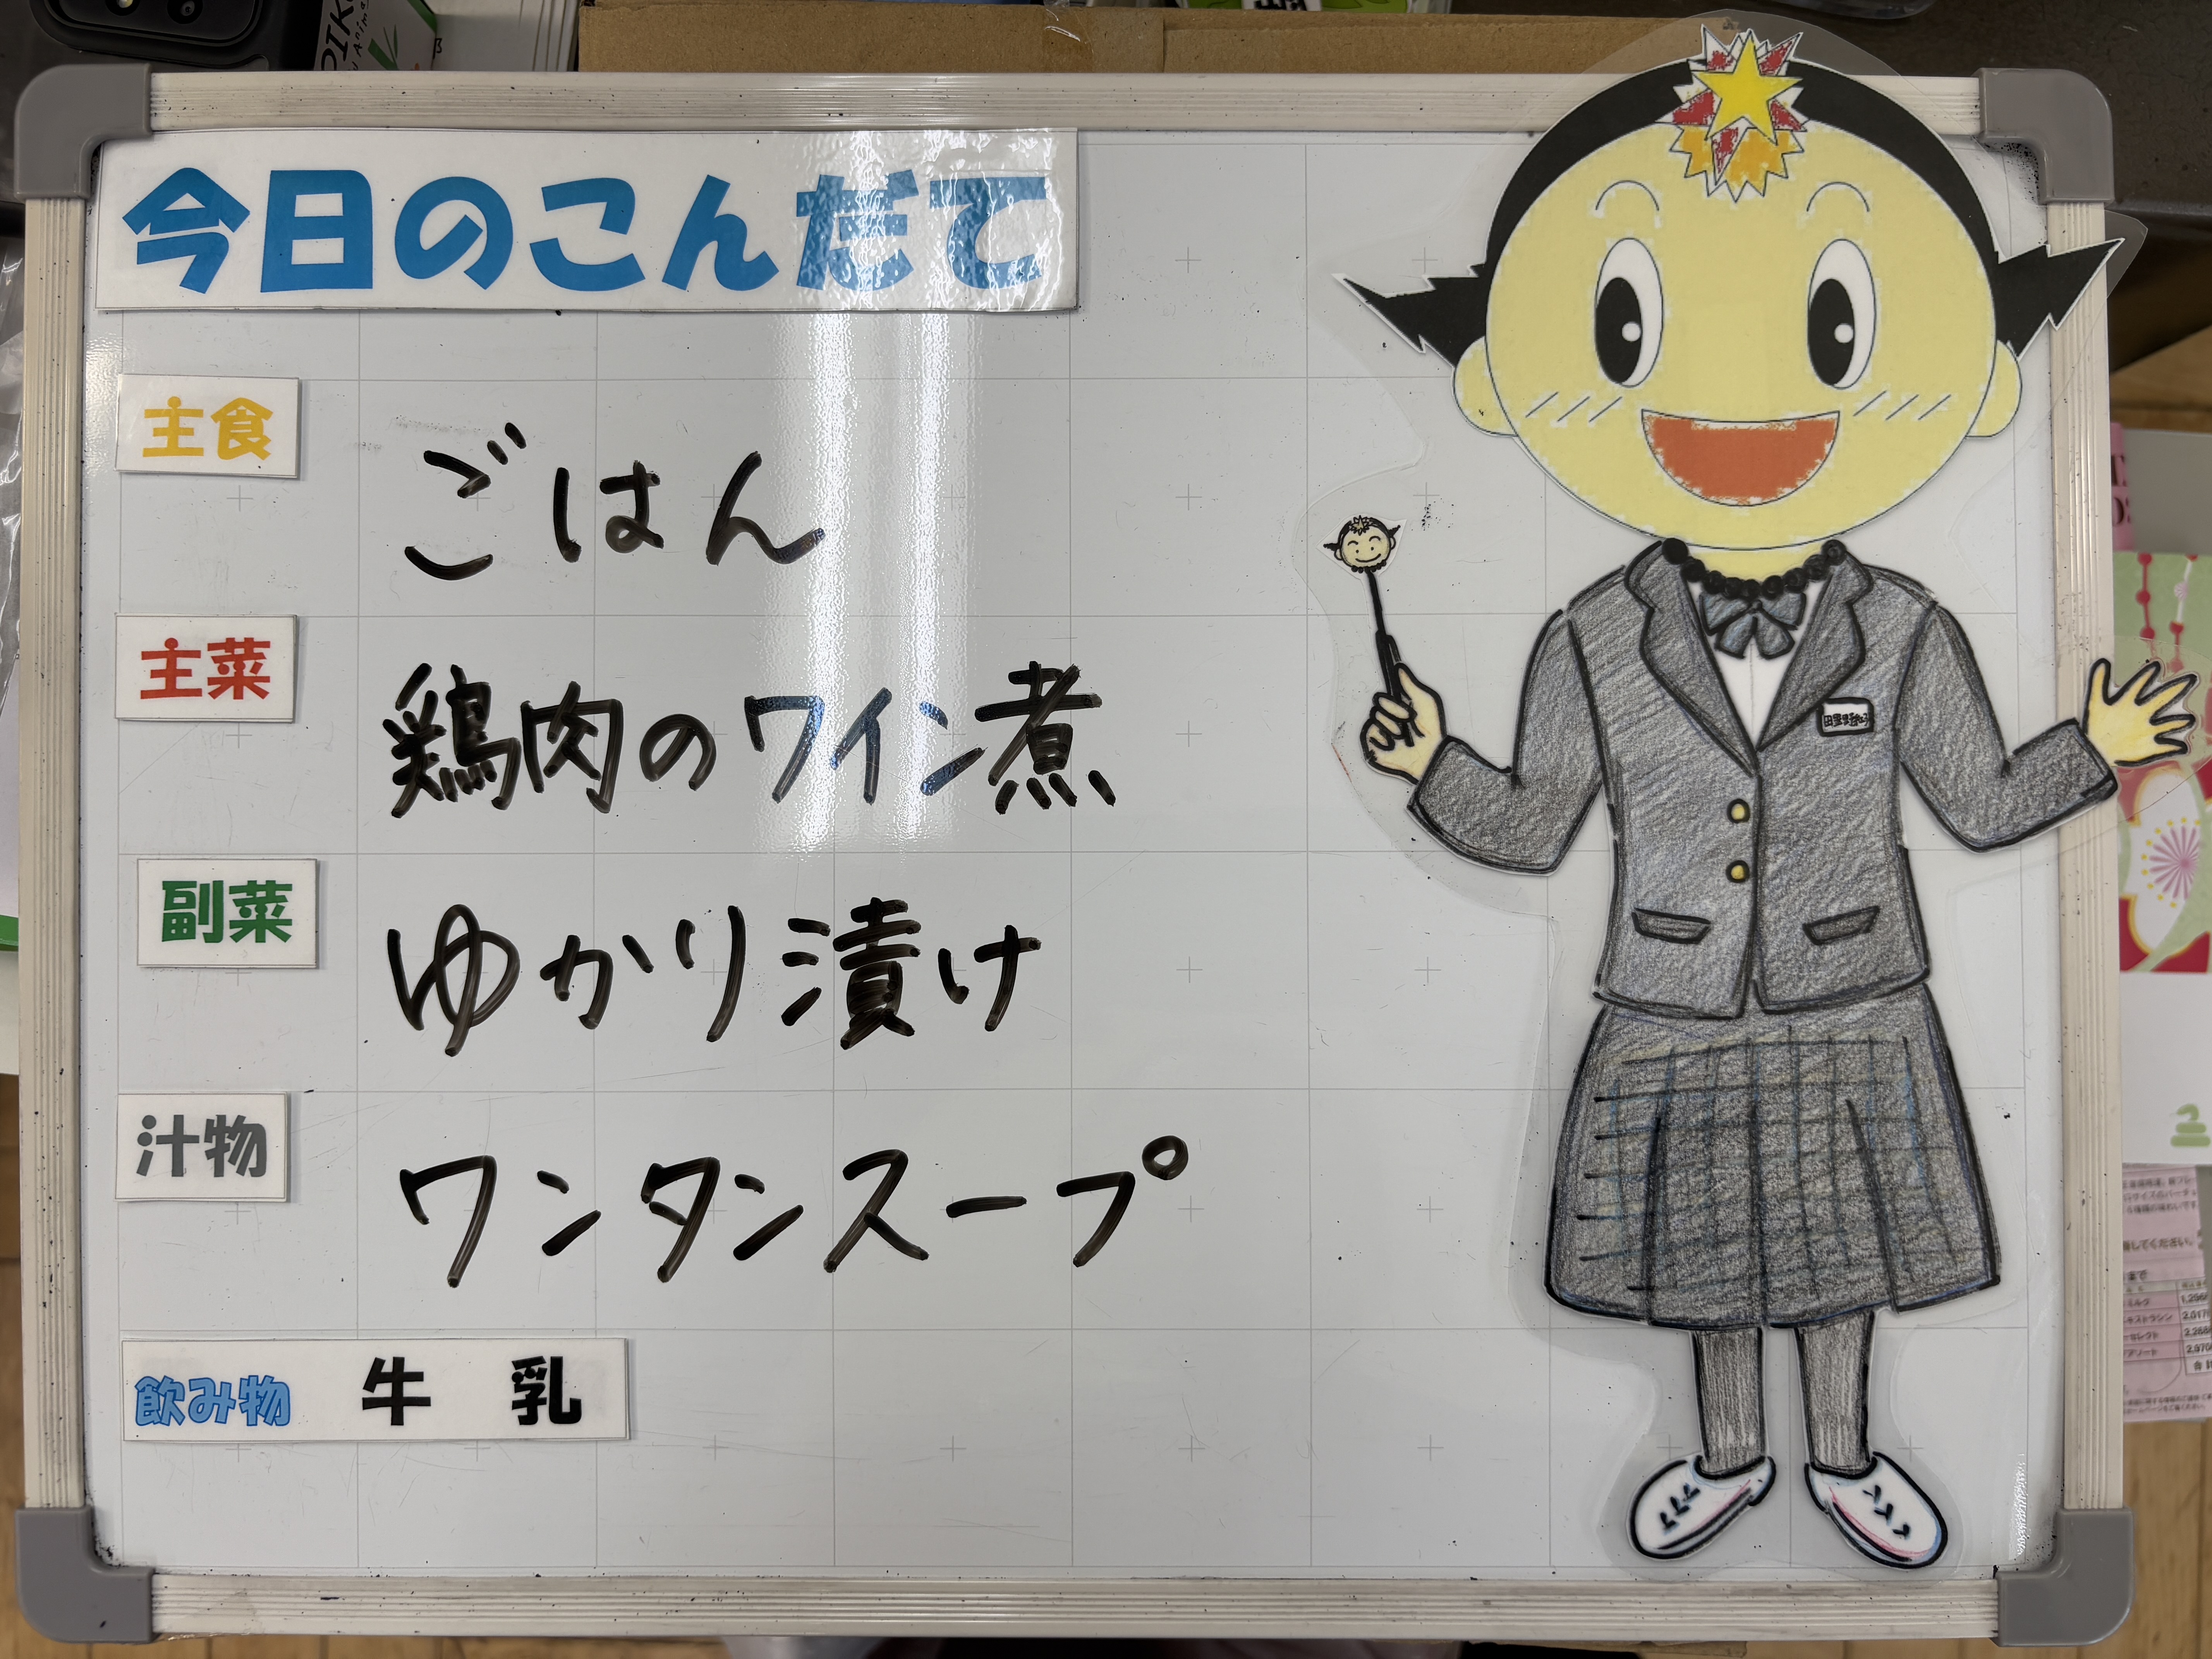 今日のこんだて
主食
ごはん
主菜
鶏肉のワイン煮
副菜
ゆかり漬け
汁物
ワンタンスープ
飲み物 牛乳